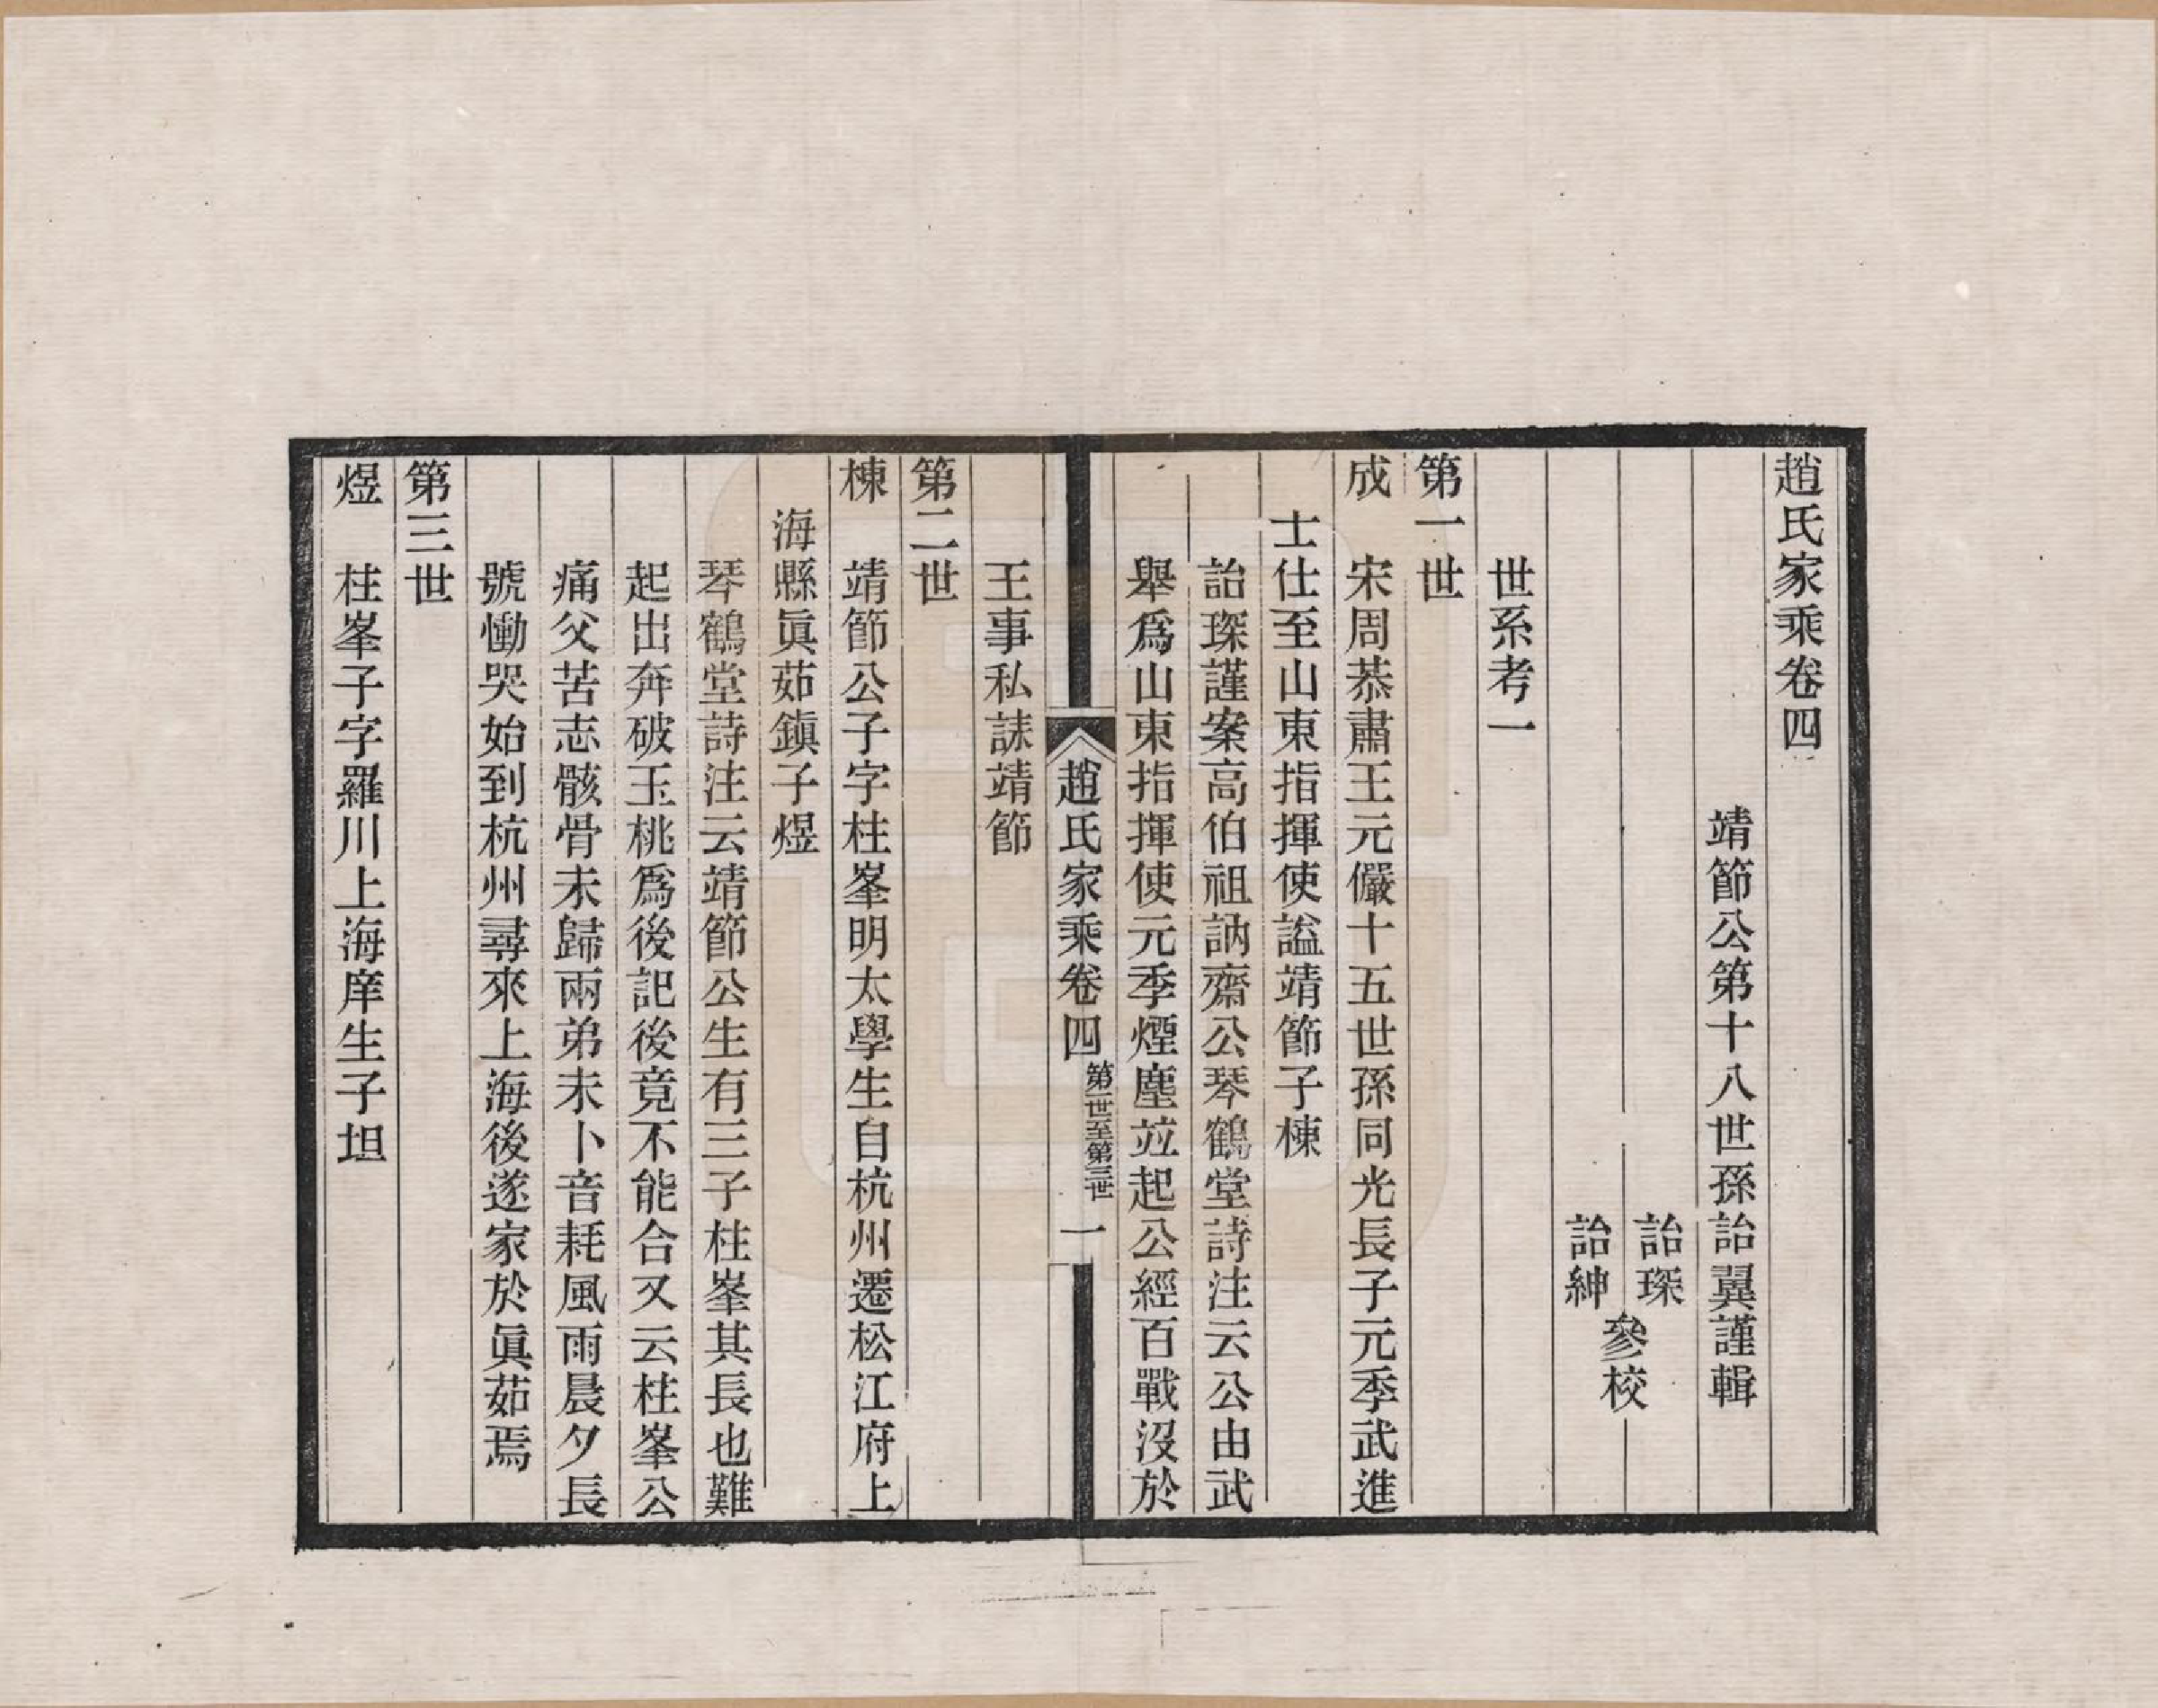 趙氏家乘卷四
靖節公第十八世孫詒翼謹輯
詒琛
詒紳
參校
世系考一
第一世
成　宋周恭肅王元儼十五世孫同光長子元季武進
士仕至山東指揮使謚靖節子棟
詒琛謹案高伯祖訥齋公琴鶴堂詩注云公由武
舉爲山東指揮使元季煙塵竝起公經百戰沒於
趙氏家乘卷四　第一世至第三世　一
王事私誄靖節
第二世
棟　靖節公子字柱峯明太學生自杭州遷松江府上
海縣眞茹鎮子煜
琴鶴堂詩注云靖節公生有三子柱峯其長也難
起出奔破玉桃爲後記後竟不能合又云柱峯公
痛父苦志骸骨未歸兩弟未卜音耗風雨晨夕長
號慟哭始到杭州尋來上海後遂家於眞茹焉
第三世
煜　柱峯子字羅川上海庠生子坦